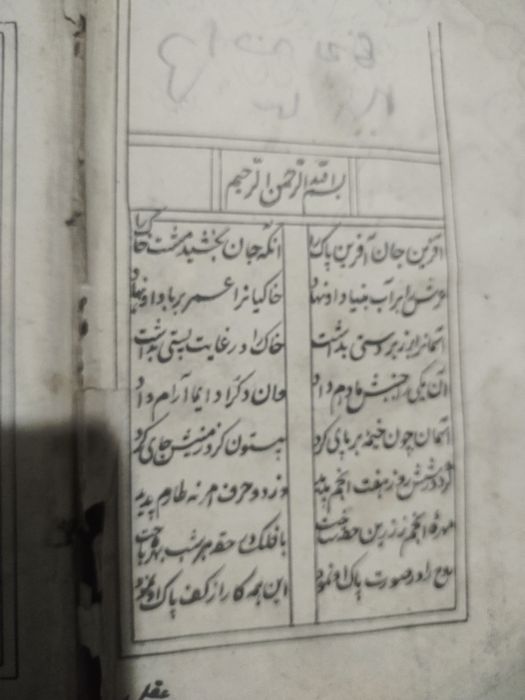 بسم الله الرحمن الرحیم
آفرین جان آفرین پاک را
آنکه جان بخشید مشت خاک را
عرش را بر آب بنیاد او نهاد
خاکیانرا عمر بر باد او نهاد
آسمانرا زبردستی بداشت
خاک را در غایت پستی بداشت
آن یکی را جنبش مادم داد
وان دگر را دایما آرام داد
آسمان چون خیمه بر پای کرد
بیستون کرد زمینش جای کرد
کرد در شش روز هفت انجم پدید
وز دو حرف نه طارم پدید
مهره انجم ز زرین حقه ساخت
با فلک در حقه هر شب مهره باخت
روح را در صورت پاک او نمود
این همه کار از کف پاک او نمود
عقل